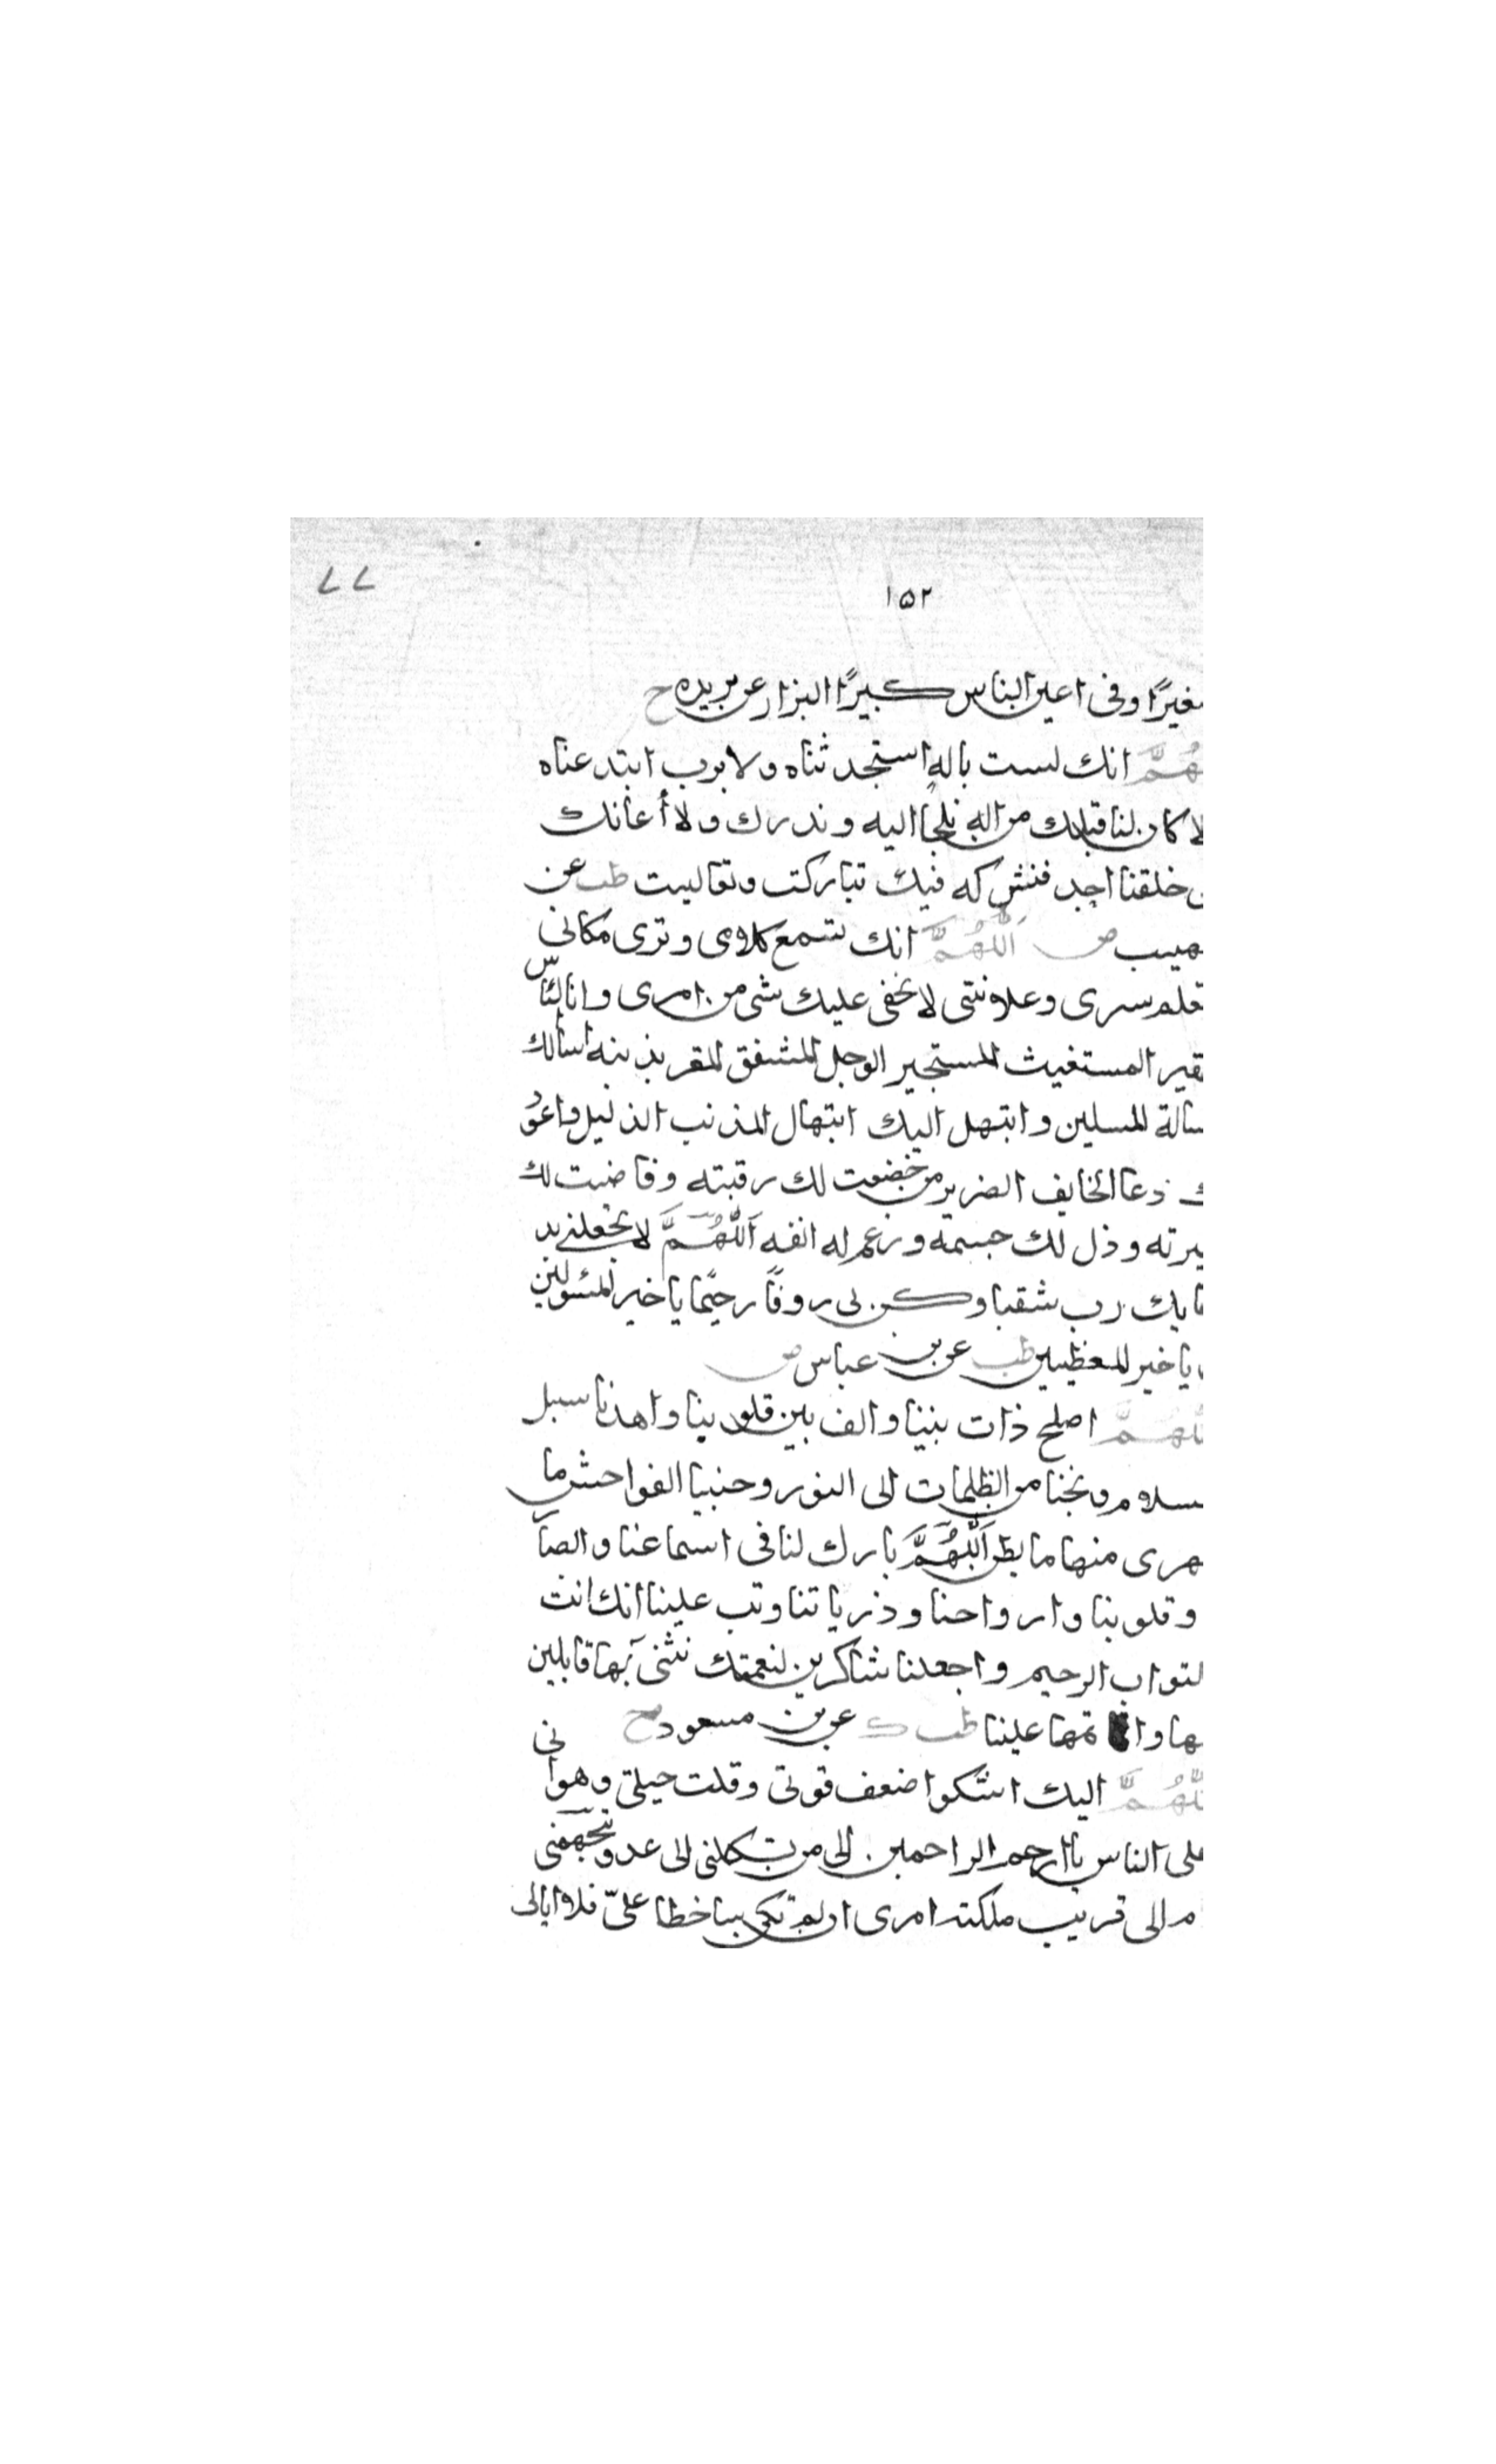 ٧٧
١٥٢
غيرًا وفى اعين الناس كبيرًا البزار عن بريده ح
هُمَّ انك لست باله استحدثناه ولا برب ابتدعناه
لا كان لنا قبلك من اله نلجأ اليه وندرك ولا أعانك
خلقنا احد فنشركه فيك تباركت وتعاليت طب عن
هيب ض اَللّٰهُمَّ انك تسمع كلامى وترى مكانى
علم سرى وعلانيتى لا يخفى عليك شى من امرى وانا البائس
قير المستغيث المستجير الوجل المشفق المقر بذنبه اسألك
سألة المسلين وابتهل اليك ابتهال المذنب الذليل وادعو
ك دعا الخايف الضرير من خضعت لك رقبته وفاضت لك
برته وذل لك جسمه ورغم له انفه اَللّٰهُمَّ لا تجعلنى بد
عايك رب شقيا وكن لى روفًا رحيمًا يا خير المسئولين
يا خير المعطيين طب عن بن عباس ض
لهُمَّ اصلح ذات بيننا والف بين قلوبنا واهدنا سبل
سلام ونجنا من الظلمات الى النور وجنبنا الفواحش ما
هرى منها ما بطن اَللّٰهُمَّ بارك لنا فى اسماعنا وابصآر
وقلوبنا وارواحنا وذرياتنا وتب علينا انك انت
لتواب الرحيم واجعلنا شاكرين لنعمتك نثنى بها قابلين
بها واتمها علينا طب ك عن بن مسعود صح
لّهُمَّ اليك اشكوا ضعف قوتى وقلت حيلتى وهوانى
على الناس يا ارحم الراحمين الى من تكلنى الى عدو يتجهمنى
م الى قريب ملكته امرى ان لم تكن ساخطا علىّ فلا ابالى